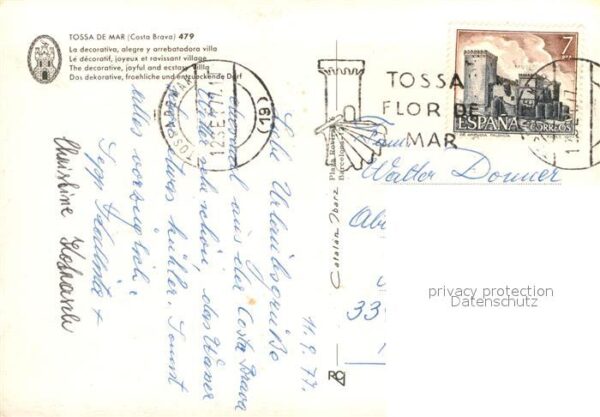 TOSSA DE MAR (Costa Brava) 479
La decorativa, alegre y arrebatadora villa
Le décoratif, joyeux et ravissant village
The decorative, joyful and ecstasy villa
Das dekorative, froehliche und entzueckende Dorf
TOSSA DE MAR
12 SE
(19)
TOSSA
FLOR DE
MAR
7
PTA
ESPAÑA
CORREOS
Plaza
Barcelona
Catalan Ibarz
11.9.77.
Liebe Urlaubsgrüße
diesmal aus der Costa Brava
Wetter sehr schön, das Wasser
etwas kühler. Sonst
alles vorzüglich.
Sepp +
Christine
Walter Donner
33
privacy protection
Datenschutz